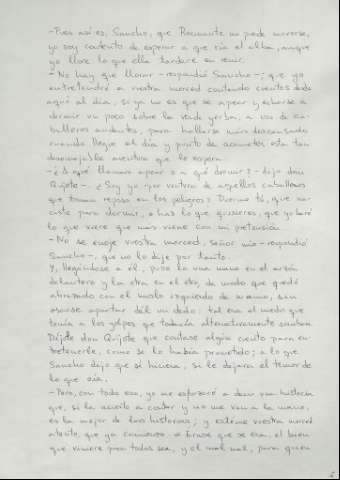 -Pues así es, Sancho, que Rocinante no puede moverse,
yo soy contento de esperar a que ría el alba, aunque
yo llore lo que ella tardare en venir.
-No hay que llorar -respondió Sancho-; que yo
entretendré a vuestra merced contando cuentos desde
aquí al día, si ya no es que se apear y echarse a
dormir un poco sobre la verde yerba, a uso de ca-
balleros andantes, para hallarse más descansado
cuando llegue el día y punto de acometer esta tan
desemejable aventura que le espera.
-¿A qué llamas apear o a qué dormir? -dijo don
Quijote-. ¿Soy yo por ventura de aquellos caballeros
que toman reposo en los peligros? Duerme tú, que na-
ciste para dormir, o haz lo que quisieres, que yo haré
lo que viere que más viene con mi pretensión.
-No se enoje vuestra merced, señor mío -respondió
Sancho-, que no lo dije por tanto.
Y, llegándose a él, puso la una mano en el arzón
delantero y la otra en el otro, de modo que quedó
abrazado con el muslo izquierdo de su amo, sin
osarse apartar dél un dedo: tal era el miedo que
tenía a los golpes que todavía alternativamente sonaban.
Díjole don Quijote que contase algún cuento para en-
tretenerle, como se lo había prometido; a lo que
Sancho dijo que sí hiciera, si le dejara el temor de
lo que oía.
-Pero, con todo eso, yo me esforzaré a decir una historia
que, si la acierto a contar y no me van a la mano,
es la mejor de las historias; y estéme vuestra merced
atento, que ya comienzo. «Érase que se era, el bien
que viniere para todos sea, y el mal, para quien